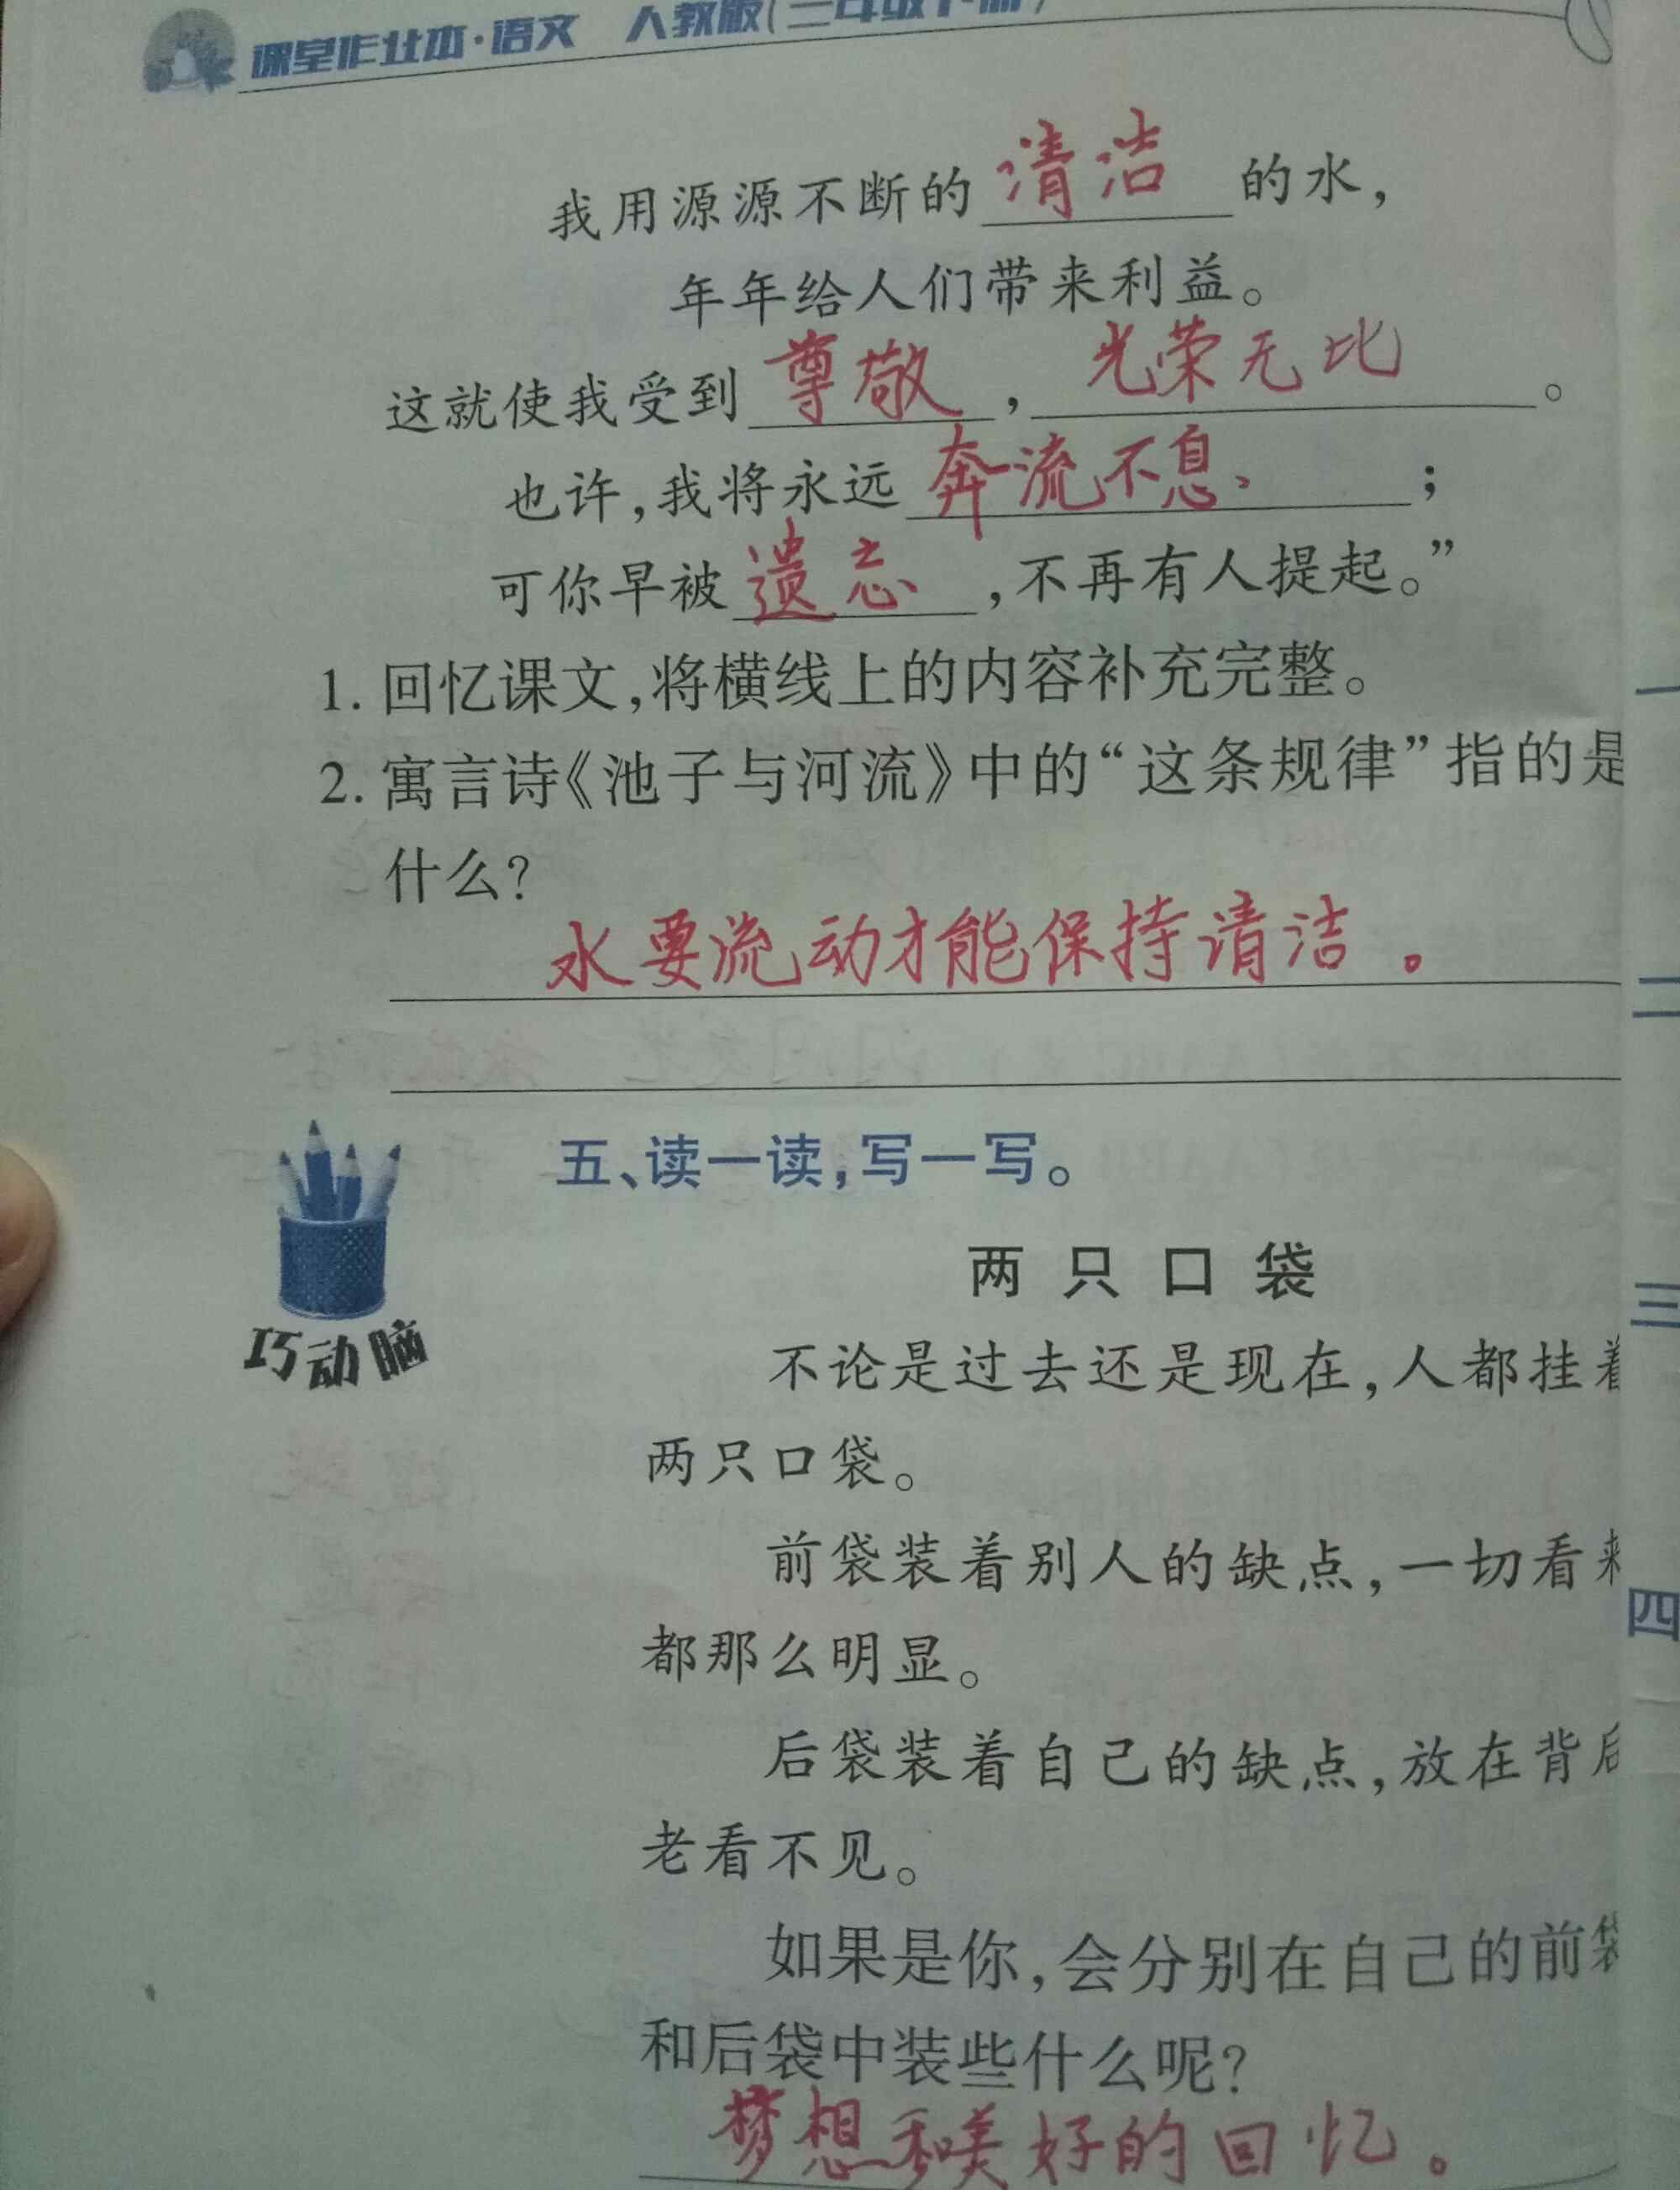 课堂作业本·语文 人教版(三年级下册)
我用源源不断的清洁的水，
年年给人们带来利益。
这就使我受到尊敬，光荣无比。
也许，我将永远奔流不息、；
可你早被遗忘，不再有人提起。”
1. 回忆课文，将横线上的内容补充完整。
2. 寓言诗《池子与河流》中的“这条规律”指的是
什么?
水要流动才能保持清洁。
五、读一读，写一写。
巧动脑
两只口袋
不论是过去还是现在，人都挂着
两只口袋。
前袋装着别人的缺点，一切看来
都那么明显。
后袋装着自己的缺点，放在背后
老看不见。
如果是你，会分别在自己的前袋
和后袋中装些什么呢?
梦想和美好的回忆。
一
二
三
四